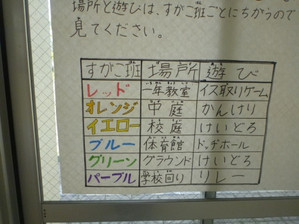 場所と遊びは、すがこ班ごとにちがうので
見てください。
すがこ班 場所 遊び
レッド 一年教室 イス取りゲーム
オレンジ 中庭 かんけり
イエロー 校庭 けいどろ
ブルー 体育館 ドッヂボール
グリーン グラウンド けいどろ
パープル 学校回り リレー